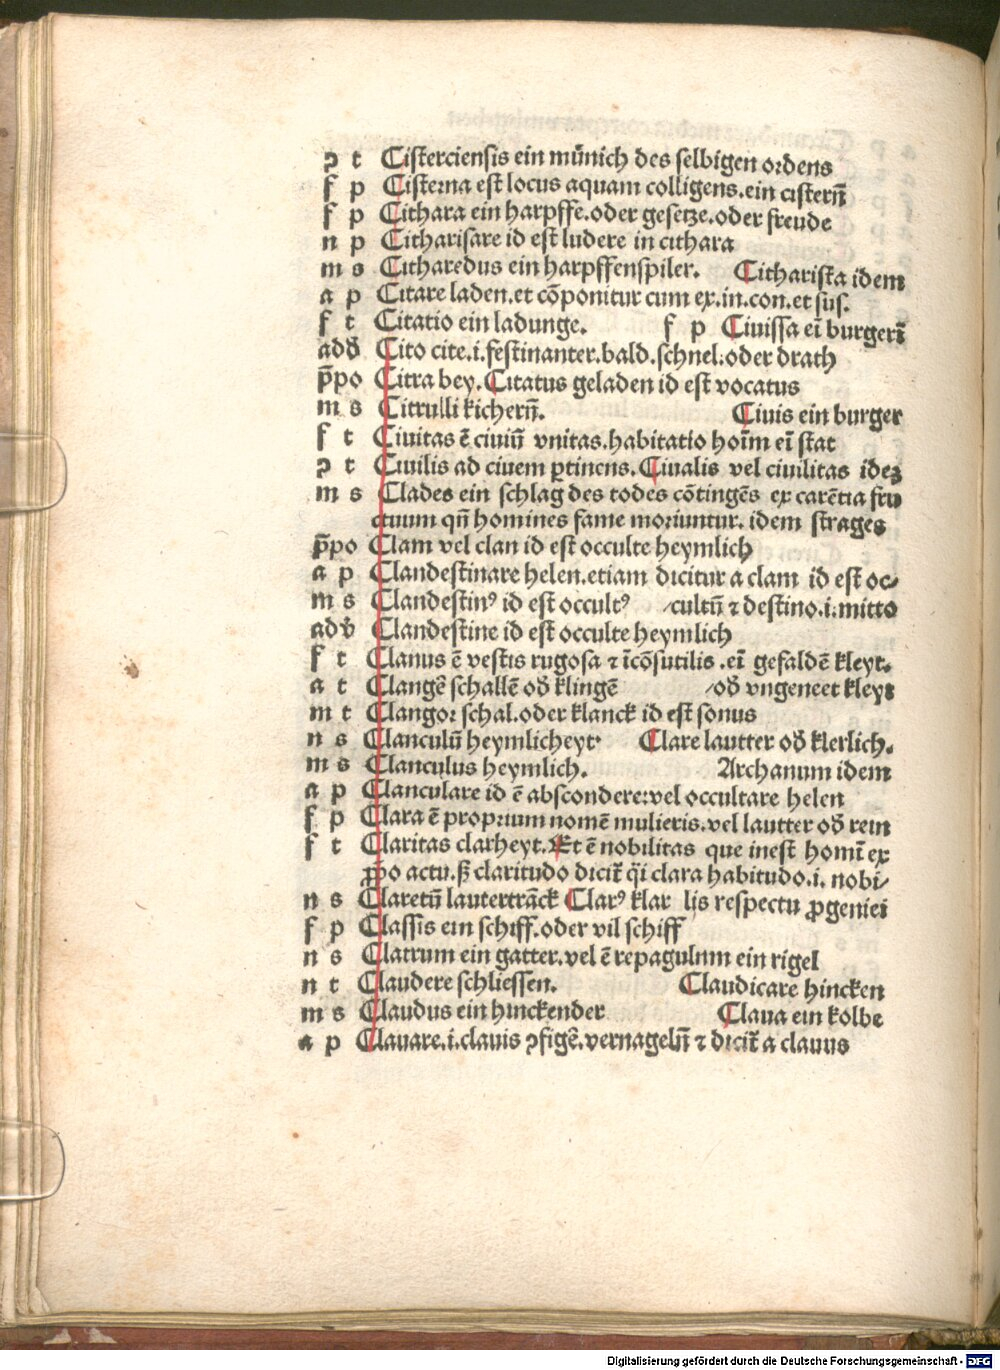 ↄ t Cisterciensis ein münich des selbigen ordens
f p Cisterna est locus aquam colligens.ein cistern̄
f p Cithara ein harpffe.oder gesetze.oder freude
n p Citharisare id est ludere in cithara
m s Citharedus ein harpffenspiler. Citharista idem
a p Citare laden.et cōponitur cum ex.in.con.et sus.
f t Citatio ein ladunge. f p Ciuissa eī burgerī
adv̄ Cito cite.i.festinanter.bald.schnel.oder drath
p̄po Citra bey. Citatus geladen id est vocatus
m s Citrulli kichern̄. Ciuis ein burger
f t Ciuitas ē ciuiū vnitas.habitatio hoīm eī stat
ↄ t Ciuilis ad ciuem ꝑtinens. Ciualis vel ciuilitas ideꝫ
m s Clades ein schlag des todes cōtingēs ex carētia fru
ctuum qn̄ homines fame moriuntur. idem strages
p̄po Clam vel clan id est occulte heymlich
a p Clandestinare helen.etiam dicitur a clam id est oc⸗
m s Clandestinꝰ id est occultꝰ ⸗cultū ⁊ destino.i.mitto
adv̄ Clandestine id est occulte heymlich
f t Clanus ē vestis rugosa ⁊ īcōsutilis.eī gefaldē kleyt.
a t Clangē schallē od̄ klingē ⸗od̄ vngeneet kleyt
m t Clangor schal.oder klanck id est sonus
n s Clanculū heymlicheyt. Clare lautter od̄ klerlich.
m s Clanculus heymlich. Archanum idem
a p Clanculare id ē abscondere:vel occultare helen
f p Clara ē proprium nomē mulieris.vel lautter od̄ rein
f t Claritas clarheyt. Et ē nobilitas que inest homī ex
ꝓpo actu.ß claritudo dicit̄ q̄i clara habitudo.i. nobi⸗
n s Claretū lautertrāck Clarꝰ klar lis respectu ꝓgeniei
f p Classis ein schiff.oder vil schiff
n s Clatrum ein gatter.vel ē repagulum ein rigel
n t Claudere schliessen. Claudicare hincken
m s Claudus ein hinckender Claua ein kolbe
a p Clauare.i.clauis ↄfigē.vernageln̄ ⁊ dicit̄ a clauus
Digitalisierung gefördert durch die Deutsche Forschungsgemeinschaft - DFG